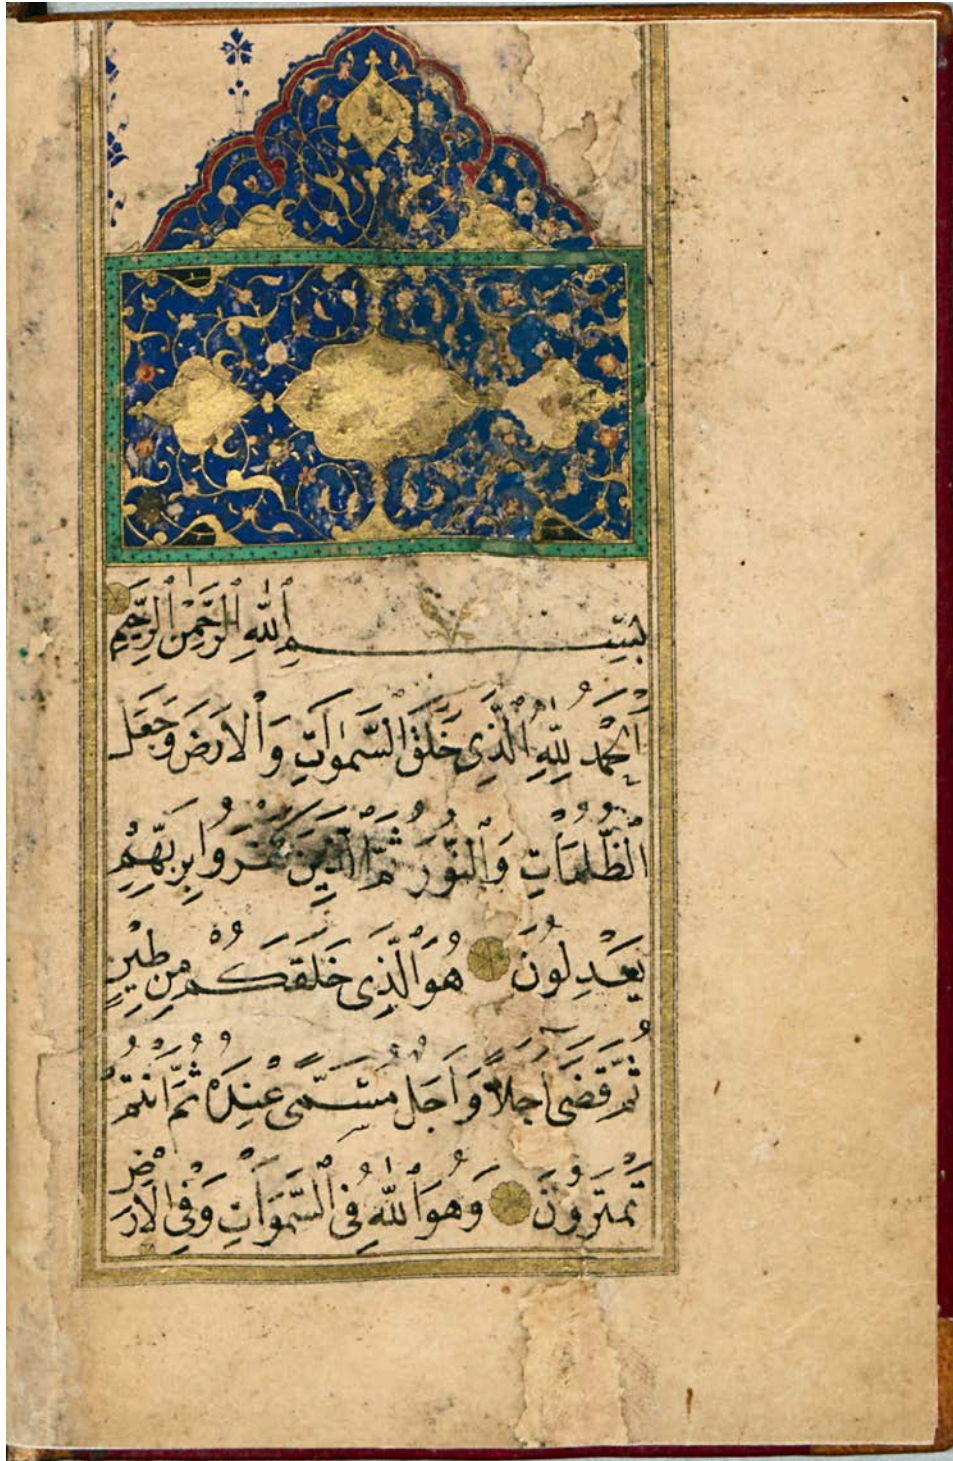 بِسْمِ ٱللَّهِ ٱلرَّحْمٰنِ ٱلرَّحِيمِ
اَلْحَمْدُ لِلّٰهِ ٱلَّذِى خَلَقَ ٱلسَّمٰوَاتِ وَٱلْاَرْضَ وَجَعَلَ
ٱلظُّلُمَاتِ وَٱلنُّورَ ثُمَّ ٱلَّذِينَ كَفَرُوا بِرَبِّهِمْ
يَعْدِلُونَ هُوَ ٱلَّذِى خَلَقَكُمْ مِنْ طِينٍ
ثُمَّ قَضَى اَجَلاً وَاَجَلٌ مُسَمًّى عِنْدَهُ ثُمَّ اَنْتُمْ
تَمْتَرُونَ وَهُوَ ٱللّٰهُ فِى ٱلسَّمَوَاتِ وَفِى ٱلْاَرْضِ